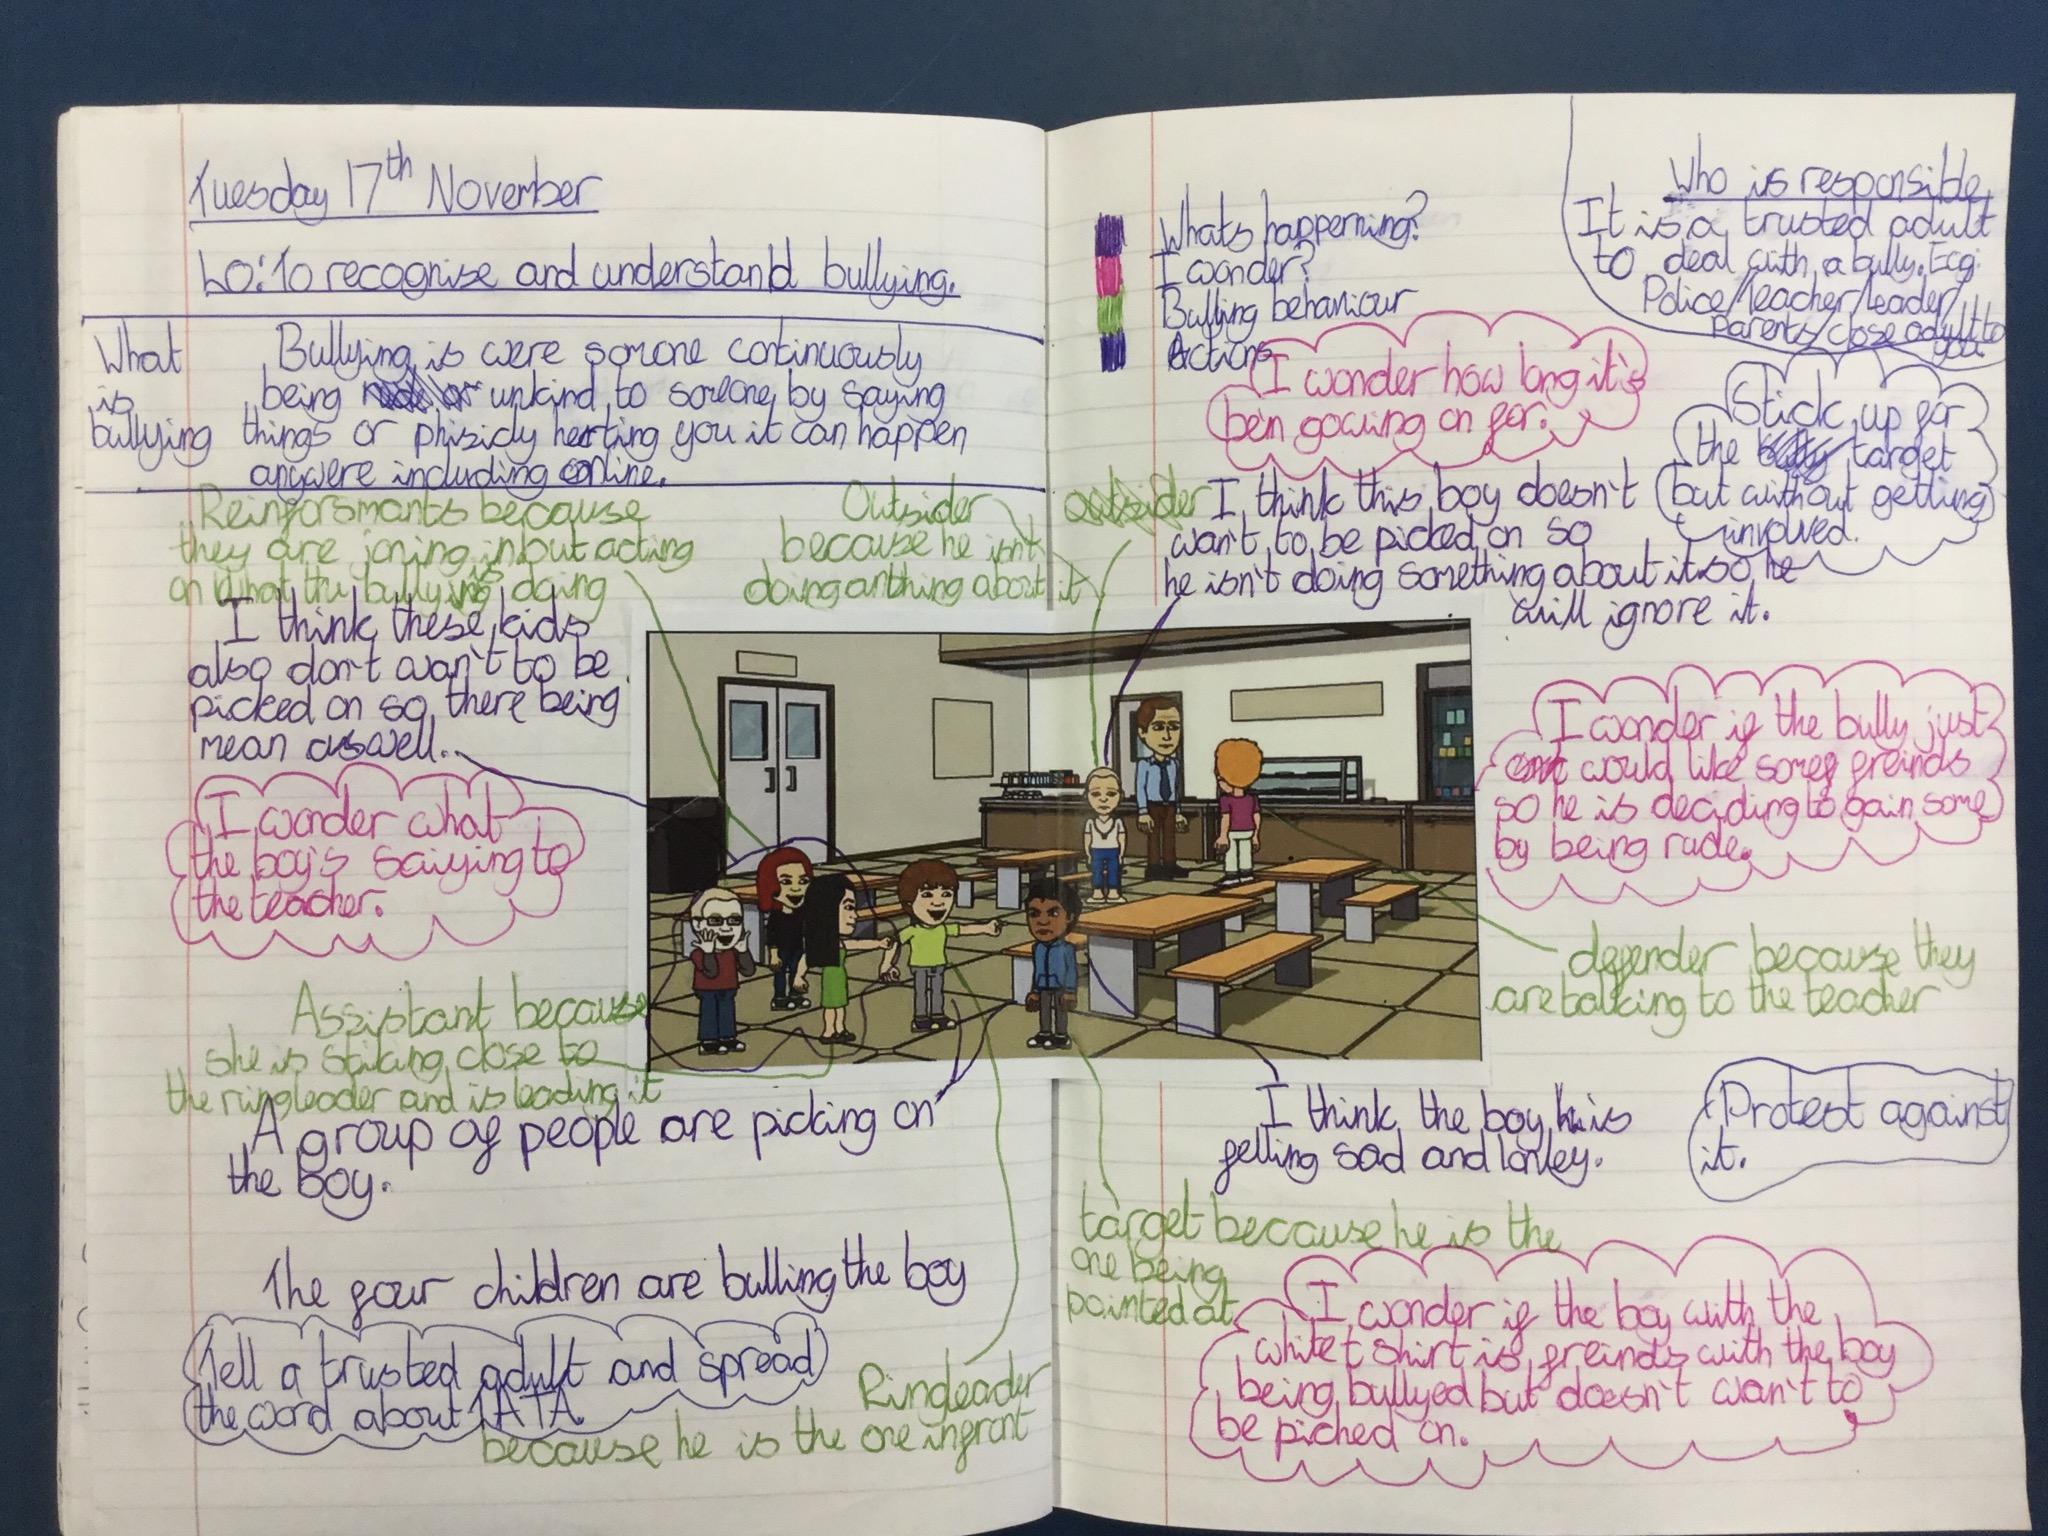 Tuesday 17th November
LO: To recognise and understand bullying.
What
is
bullying
Bullying is were somone continuously
being unkind to someone by saying
things or phisicly herting you it can happen
anywere including online.
Reinforsmants because
they are joning in but acting
on what the bullying is doing
Outsider
because he isn't
doing anthing about it
I think these kids
also don't wan't to be
picked on so there being
mean aswell.
I wonder what
the boy's saiying to
the teacher.
Assistant because
she is stiking close to
the ringleader and is leading it
A group of people are picking on
the boy.
The four children are bulling the boy
Tell a trusted adult and spread
the word about TATA.
Ringleader
because he is the one infront
Whats happerning?
I wonder?
Bulling behaviour
Actions
Who is responsible
It is a trusted adult
to deal with a bully. Eg:
Police/teacher/leader/
parents/close adult to
you
I wonder how long it's
be'n gowing on for.
Stick up for
the target
but without getting
involved.
outsider
I think this boy doesn't
wan't to be picked on so
he isn't doing something about it so he
will ignore it.
I wonder if the bully just
would like some freinds
so he is deciding to gain some
by being rude.
defender because they
are talking to the teacher
I think the boy is
felling sad and lonley.
Protest against
it.
target because he is the
one being
pointed at
I wonder if the boy with the
white t shirt is freinds with the boy
being bullyed but doesn't wan't to
be picked on.